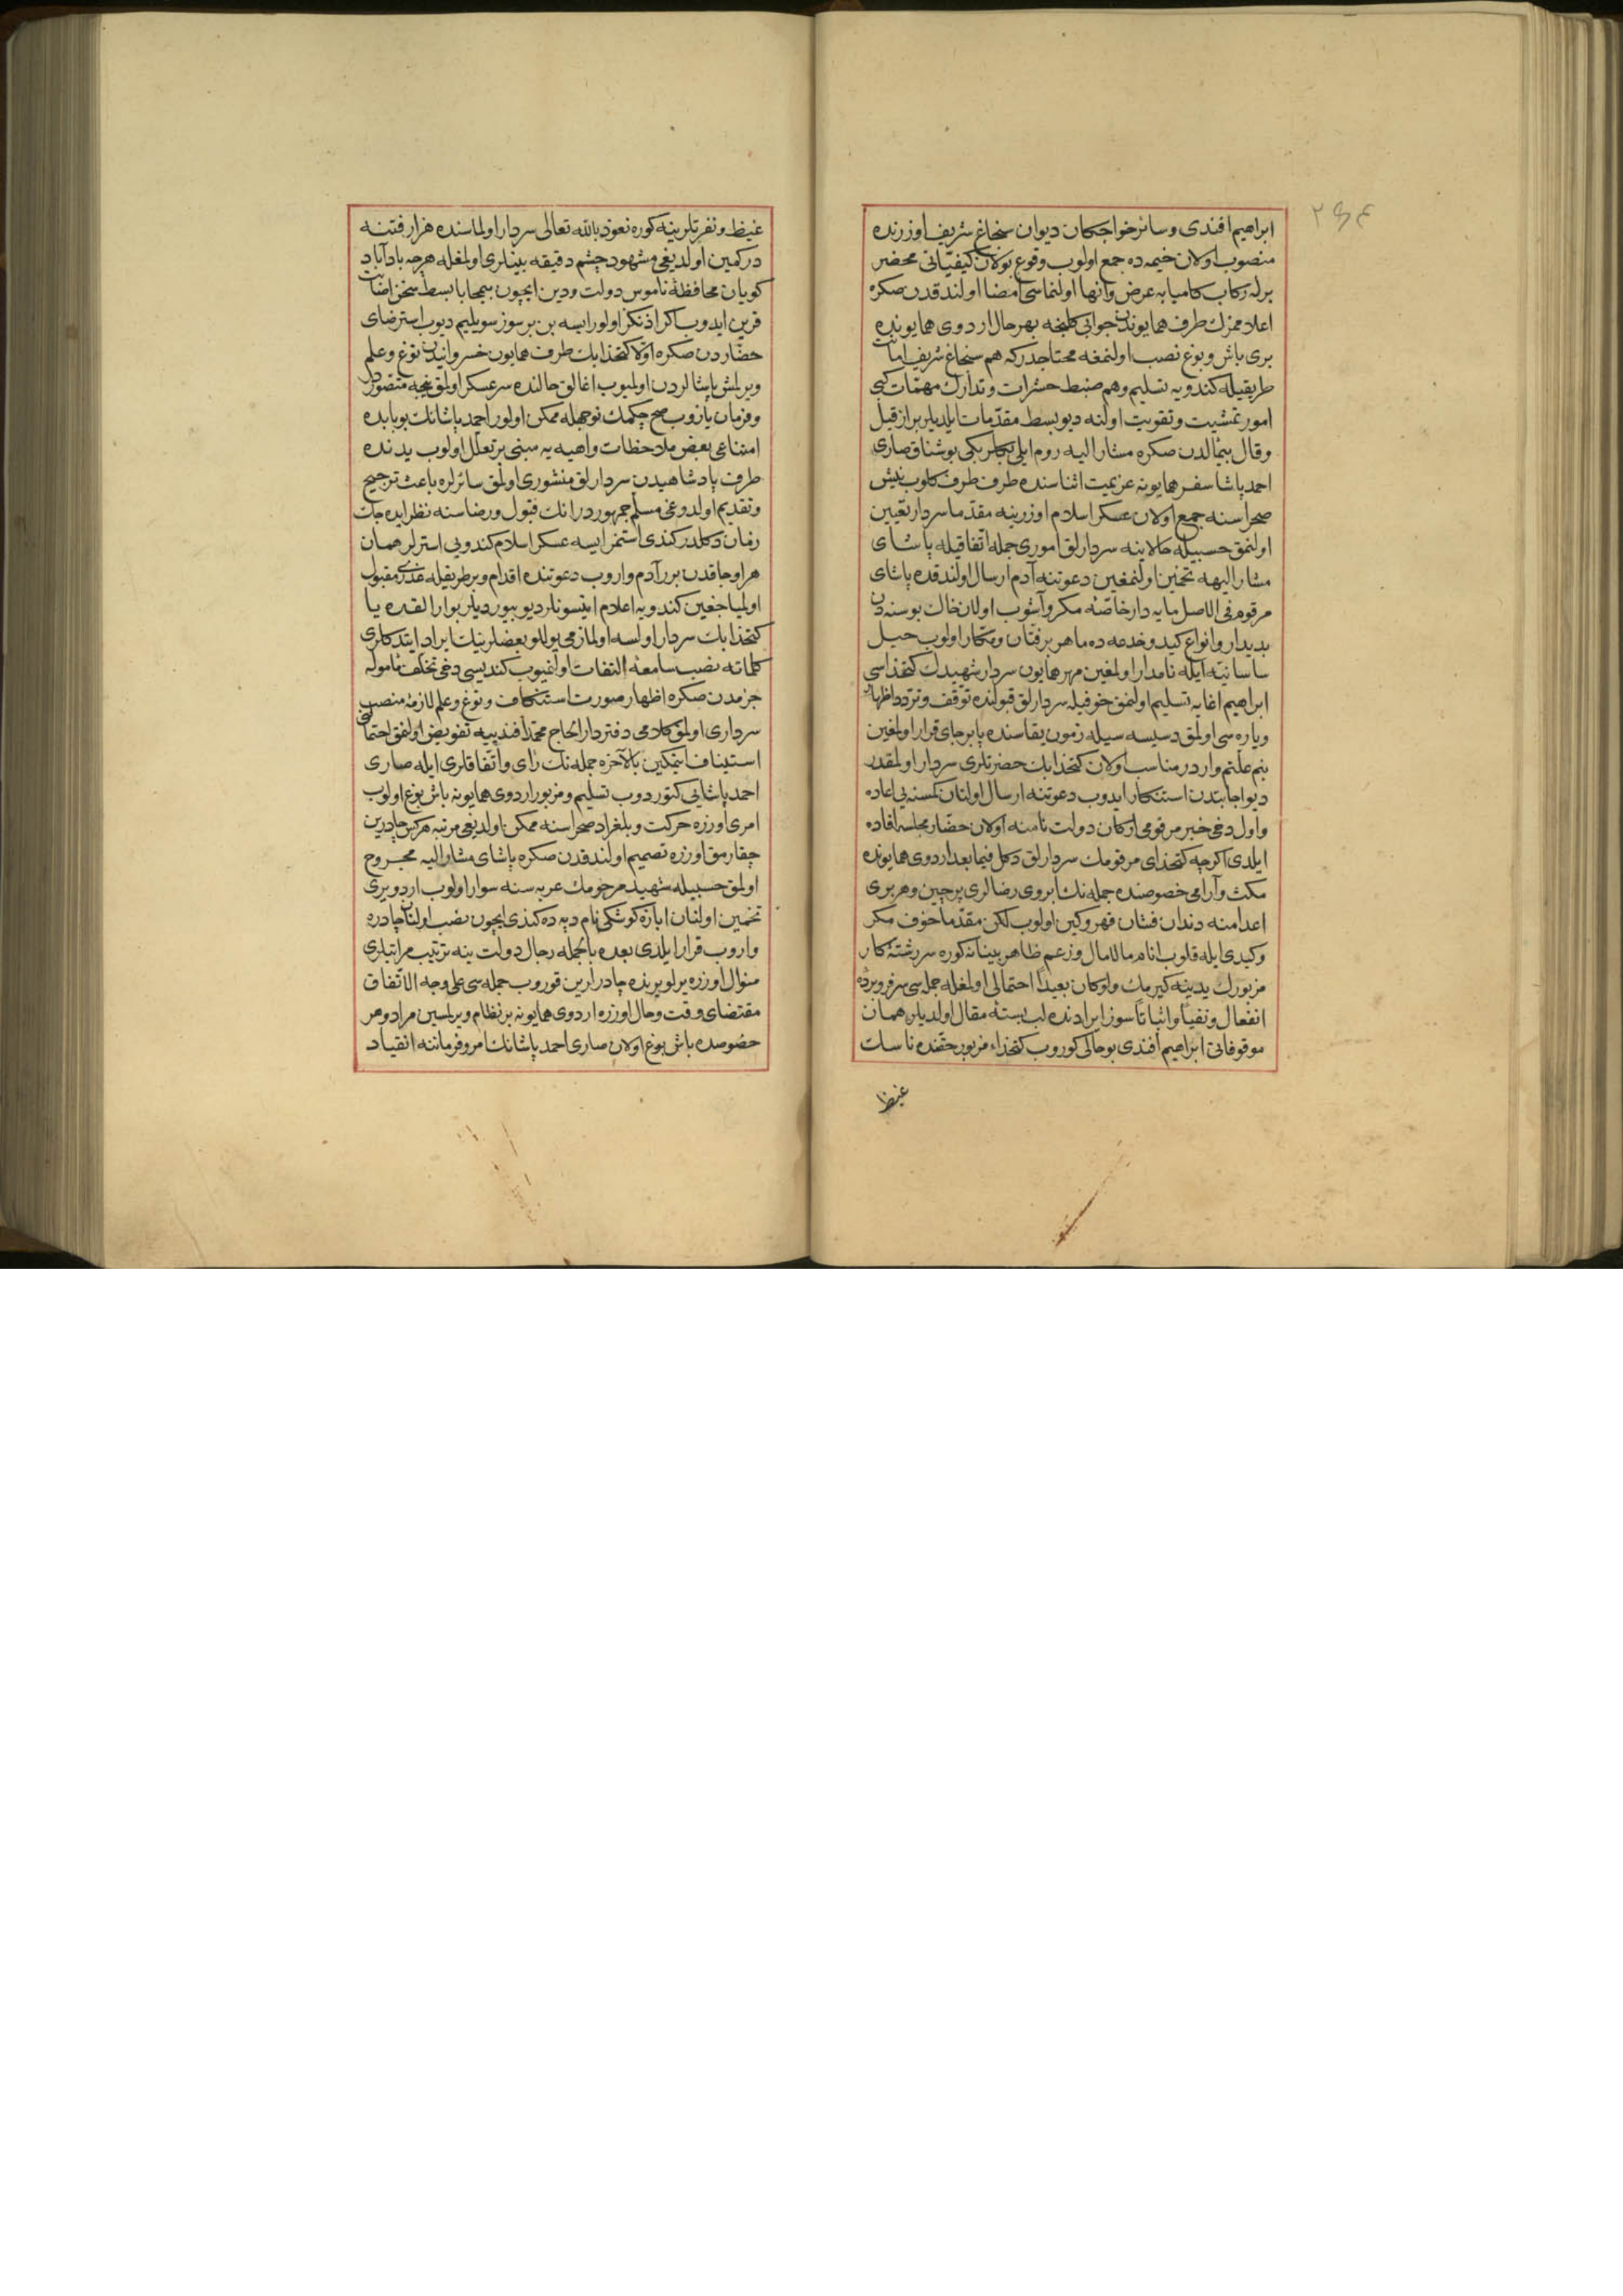 ابراهیم افندی و سائر خواجکان دیوان سنجاغ شریف اوزرنده
منصوب اولان خیمه ده جمع اولوب وقوع بولان کیفیّاتی محضر
برله رکاب کامیابه عرض و انها اولنماسی امضا اولندقدن صکره
اعلاممزك طرف همایوندن جوابی کلنجه بهرحال اردوی همایونده
بری باش و بوغ نصب اولنمغه محتاجدر که هم سنجاغ شریف امانت
طریقیله کندویه تسلیم و هم ضبط حشرات و تدارك مهمّات کبی
امور تمشیت و تقویت اولنه دیو بسط مقدّمات ایلدیلر بر از قیل
و قال بیمالدن صکره مشار الیه روم ایلی بکلربکی بوشناق صاری
احمد پاشا سفر همایونه عزیمت اثناسنده طرف طرف کلوب نیش
صحراسنه جمع اولان عسکر اسلام اوزرینه مقدّما سردار تعیین
اولنمق حسبیله حالا ینه سردارلق اموری جمله اتفاقیله پاشای
مشار الیهه تخمین اولنمغین دعوتنه آدم ارسال اولندقده پاشای
مرقوم فی الاصل مایه دار خاصّهٔ مکر و آشوب اولان خاك بوسنه دن
بدیدار و انواع کید و خدعه ده ماهر بر فتّان و مکار اولوب حیل
ساسانیّه ایله نامدار اولمغین مهر همایون سردار شهیدك کتخداسی
ابراهیم اغایه تسلیم اولنمق خوفیله سردارلق قبولنده توقف و تردد اظهار
و یاره سی اولمق دسیسه سیله زمون یقاسنده پابرجای قرار اولمغین
بنم علّتم واردر مناسب اولان کتخدا بك حضرتلری سردار اولمقدر
دیو اجابتدن استنکار ایدوب دعوتنه ارسال اولنان کمسنه یی اعاده
و اول دخی خبر مرقومی ارکان دولت نامنه اولان حضّار مجلسه افاده
ایلدی اکرچه کتخدای مرقومك سردارلق دکل فیما بعد اردوی همایونده
مکث و آرامی خصوصنده جمله نك ابروی رضالری پرچین و هر بری
اعدامنه دندان فشان قهر و کین اولوب لکن مقدّما خوف مکر
و کیدی ایله قلوب انام مالامال و زعم ظاهر بینانه کوره سررشتهٔ کار
مزبورك یدینه کیرمك ولو کان بعیداً احتمالی اولمغله جمله سی سرفروبردهٔ
انفعال و نفیاً و اثباتاً سوز ایرادنده لب بستهٔ مقال اولدیلر همان
موقوفاتی ابراهیم افندی بو حالی کوروب کتخداء مزبور حقنده ناسك
غیظ
غیظ و نفرتلرینه کوره نعوذ بالله تعالی سردار اولماسنده هزار فتنه
در کمین اولدیغی مشهود چشم دقیقه بینلری اولمغله هرچه باداباد
کویان محافظهٔ ناموس دولت و دین ایچون بیمحابا بسط سخن اصابت
قرین ایدوب اکر اذنکز اولور ایسه بن بر سوز سویلیم دیوب استرضای
حضّاردن صکره اوّلا کتخدا بك طرف همایون خسروانیدن توغ و علم
ویرلمش پاشالردن اولمیوب اغالق حالنده سرعسکر اولمق نیجه متصوّردر
و فرمان یازوب صح چکمك نوجهله ممکن اولور احمد پاشانك بو بابده
امتناعی بعض ملاحظات واهیه یه مبنی بر تعلّل اولوب یدنده
طرف پادشاهیدن سردارلق منشوری اولمق سائرلره باعث ترجیح
و تقدیم اولدوغی مسلّم جمهوردر انك قبول و رضاسنه نظر ایده جك
زمان دکلدر کندی استمز ایسه عسکر اسلام کندویی استرلر همان
هر اوجاقدن برر آدم واروب دعوتنده اقدام و بر طریقله عذری مقبول
اولمیاجغین کندویه اعلام ایتسونلر دیو بیوردیلر بو ارالقده یا
کتخدا بك سردار اولسه اولمازمی یوللو بعضلرینك ایراد ایتدکلری
کلماته نصب سامعهٔ التفات اولنمیوب کندیسی دخی تخلف مأموله
جزمدن صکره اظهار صورت استنکاف و توغ و علم لازمهٔ منصب
سرداری اولمق کلامی دفتردار الحاج محمّد افندییه تفویض اولنمق احتمالنی
استیناف ایتمکین بالآخره جمله نك رأی و اتّفاقلری ایله صاری
احمد پاشایی کتوردوب تسلیم و مزبور اردوی همایونه باش بوغ اولوب
امری اوزره حرکت و بلغراد صحراسنه ممکن اولدیغی مرتبه هرکس چادرین
چقارمق اوزره تصمیم اولندقدن صکره پاشای مشار الیه مجروح
اولمق حسبیله شهید مرحومك عربه سنه سوار اولوب اردو یری
تخمین اولنان ابازه کوشکی نام دپه ده کندی ایچون نصب اولنان چادره
واروب قرار ایلدی بعده بالجمله رجال دولت ینه ترتیب مراتبلری
منوال اوزره یرلو یرنده چادرلرین قوروب جمله سی علی وجه الاتّفاق
مقتضای وقت و حال اوزره اردوی همایونه بر نظام ویرلسین مراد و هر
خصوصده باش بوغ اولان صاری احمد پاشانك امر و فرماننه انقیاد